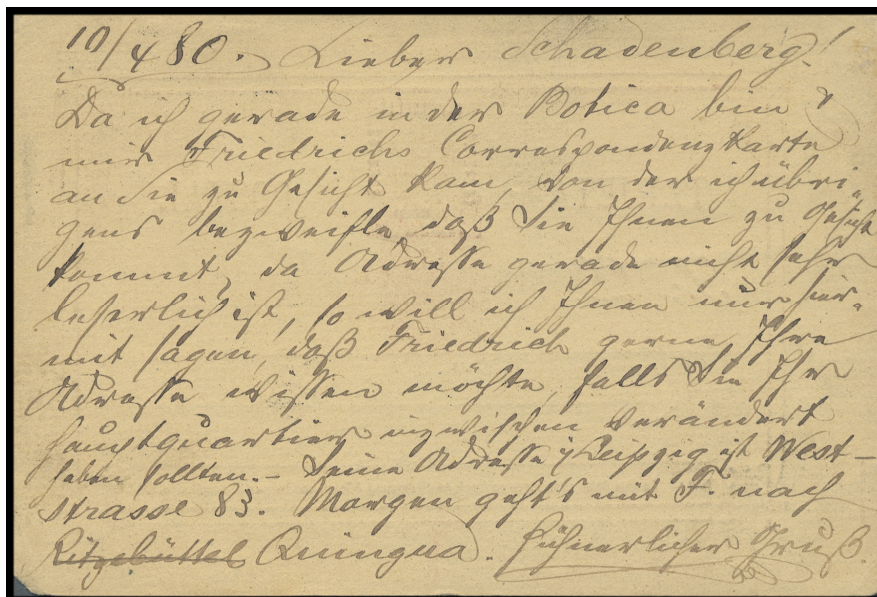 10/4 80. Lieber Schadenberg!
Da ich gerade in der Botica bin &
mir Friedrichs Correspondenzkarte
an Sie zu Gesicht kam, von der ich übri-
gens bezweifle daß sie Ihnen zu Gesicht
kommt, da Adresse gerade nicht sehr
leserlich ist, so will ich Ihnen nur hier-
mit sagen, daß Friedrich gerne Ihre
Adresse wissen möchte, falls Sie Ihr
Hauptquartier inzwischen verändert
haben sollten. – Seine Adresse i/ Leipzig ist West-
strasse 83. Morgen geht's mit F. nach
Ritzebüttel Quingua. Hühnerlicher Gruß.